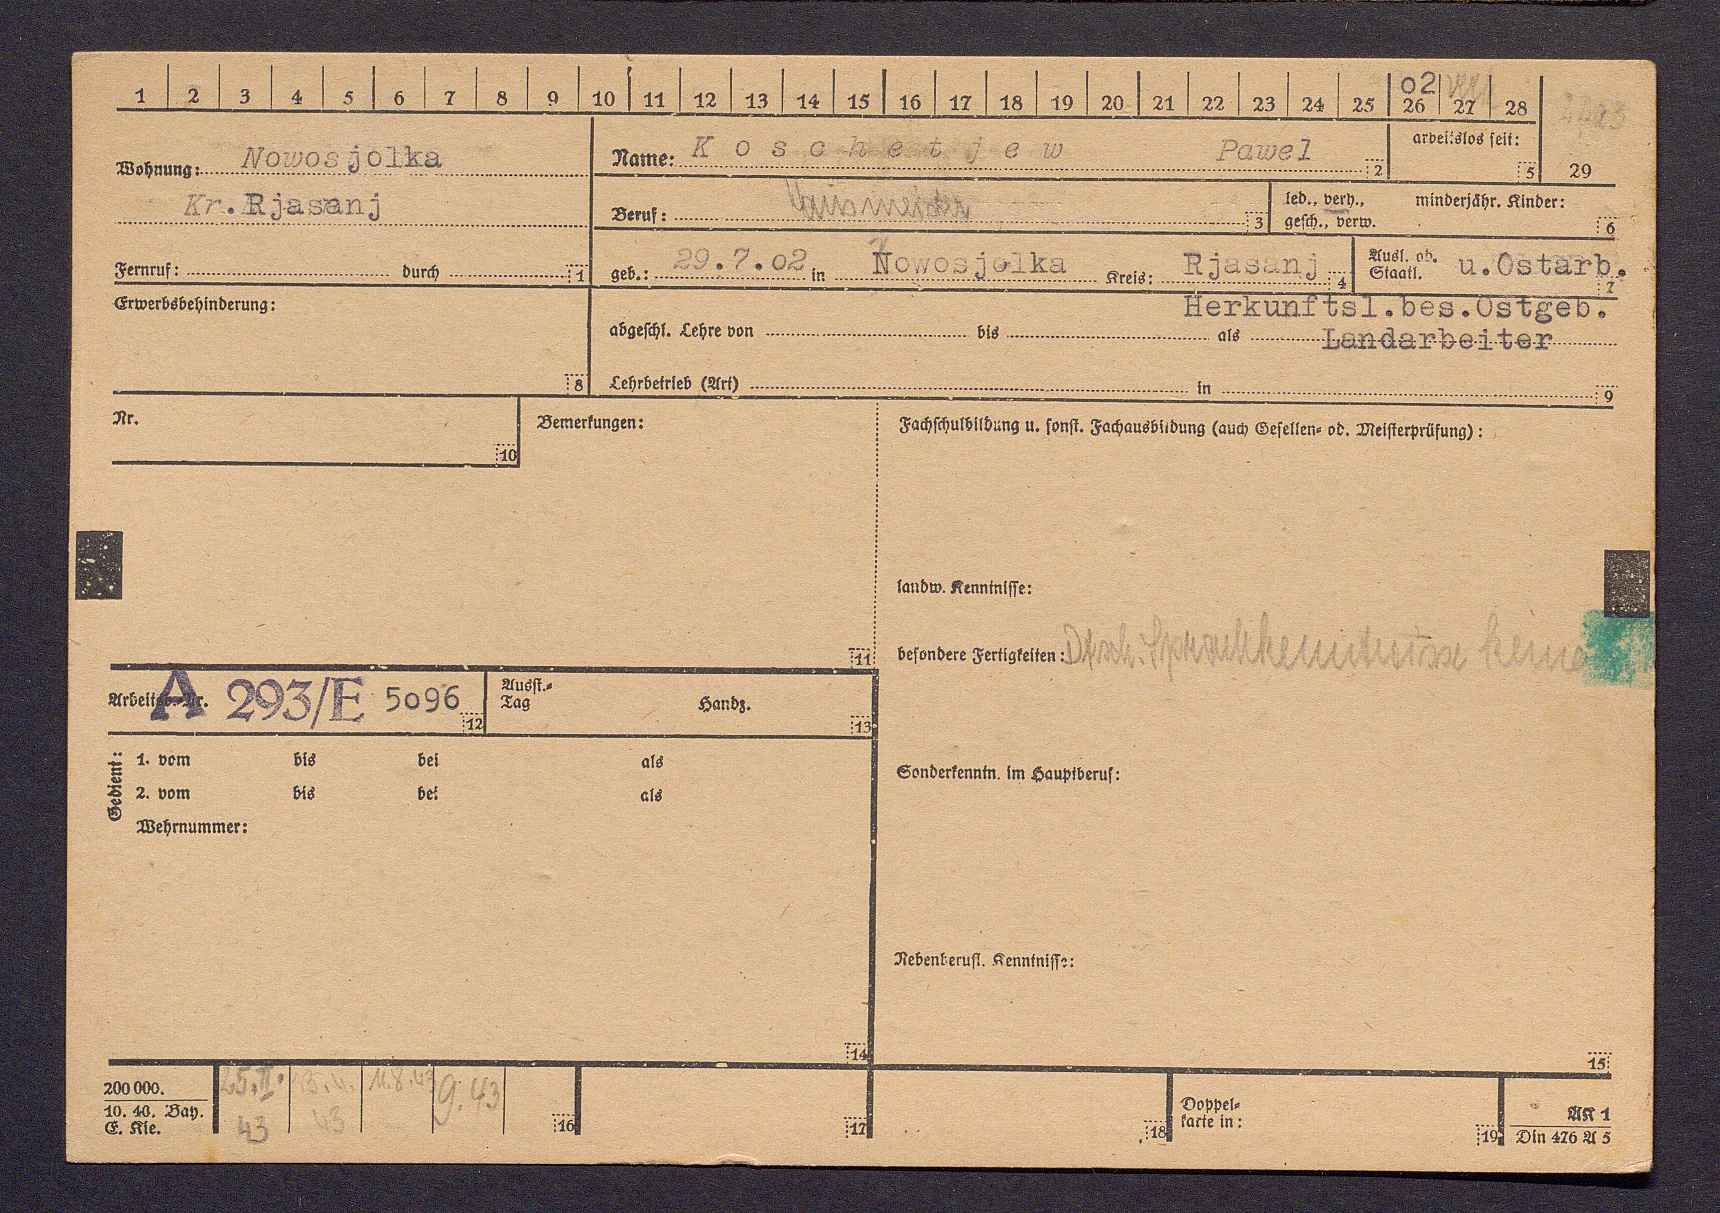 1 2 3 4 5 6 7 8 9 10 11 12 13 14 15 16 17 18 19 20 21 22 23 24 25 26 27 28
02
29
Wohnung: Nowosjolka
Kr. Rjasanj
Fernruf: durch 1
Name: Koschetjew Pawel 2
arbeitslos seit: 5
Beruf: 3
led., verh., gesch., verw.
minderjähr. Kinder: 6
geb.: 29.7.02 in Nowosjolka Kreis: Rjasanj 4
Ausl. od. Staatl. u.Ostarb. 7
Herkunftsl.bes.Ostgeb.
Erwerbsbehinderung: 8
abgeschl. Lehre von bis als Landarbeiter
Lehrbetrieb (Art) in 9
Nr. 10
Bemerkungen: 11
Fachschulbildung u. sonst. Fachausbildung (auch Gesellen- od. Meisterprüfung):
landw. Kenntnisse:
besondere Fertigkeiten: Dtsch. Sprachkenntnisse keine
Arbeitsb.-Nr. A 293/E 5096 12
Ausst.-Tag Handz. 13
Gedient:
1. vom bis bei als
2. vom bis bei als
Wehrnummer: 14
Sonderkenntn. im Hauptberuf:
Nebenberufl. Kenntnisse: 15
200 000.
10. 40. Bay.
E. Kle.
25.II. 43
43
11.8.43
9.43
16
17
18
Doppel-
karte in: 19
AK 1
Din 476 A 5